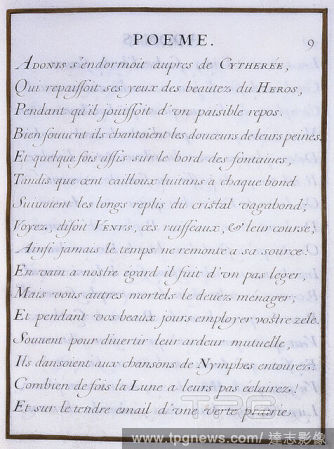 POEME.
9
ADONIS s'endormoit aupres de CYTHEREE,
Qui repaissoit ses yeux des beautez du HEROS,
Pendant qu'il jouissoit d'vn paisible repos.
Bien souuent ils chantoient les douceurs de leurs peines.
Et quelque fois assis sur le bord des fontaines,
Tandis que cent cailloux luitans a chaque bond
Suiuoient les longs replis du cristal vagabond;
Voyez, disoit VENVS, ces ruisseaux, & leur course;
Ainsi jamais le temps ne remonte a sa source:
En vain a nostre egard il fuit d'vn pas leger,
Mais vous autres mortels le deuez menager,
Et pendant vos beaux jours employer vostre zele.
Souuent pour diuertir leur ardeur mutuelle,
Ils dansoient aux chansons de Nymphes entourez:
Combien de fois la Lune a leurs pas eclairez!
Et sur le tendre email d'vne verte prairie,
TPG
www.tpgnews.com / 達志影像